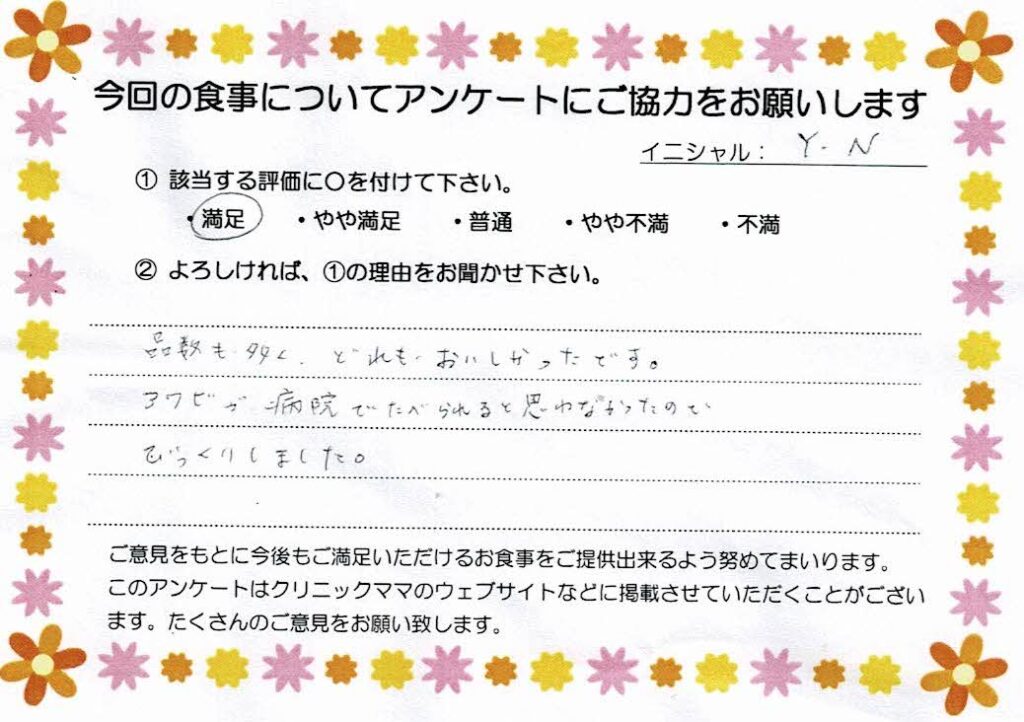 今回の食事についてアンケートにご協力をお願いします
イニシャル： Y.N
① 該当する評価に〇を付けて下さい。
・満足 ・やや満足 ・普通 ・やや不満 ・不満
② よろしければ、①の理由をお聞かせ下さい。
品数も多く、どれもおいしかったです。
アワビが病院でたべられると思わなかったので
びっくりしました。
ご意見をもとに今後もご満足いただけるお食事をご提供出来るよう努めてまいります。
このアンケートはクリニックママのウェブサイトなどに掲載させていただくことがござい
ます。たくさんのご意見をお願い致します。